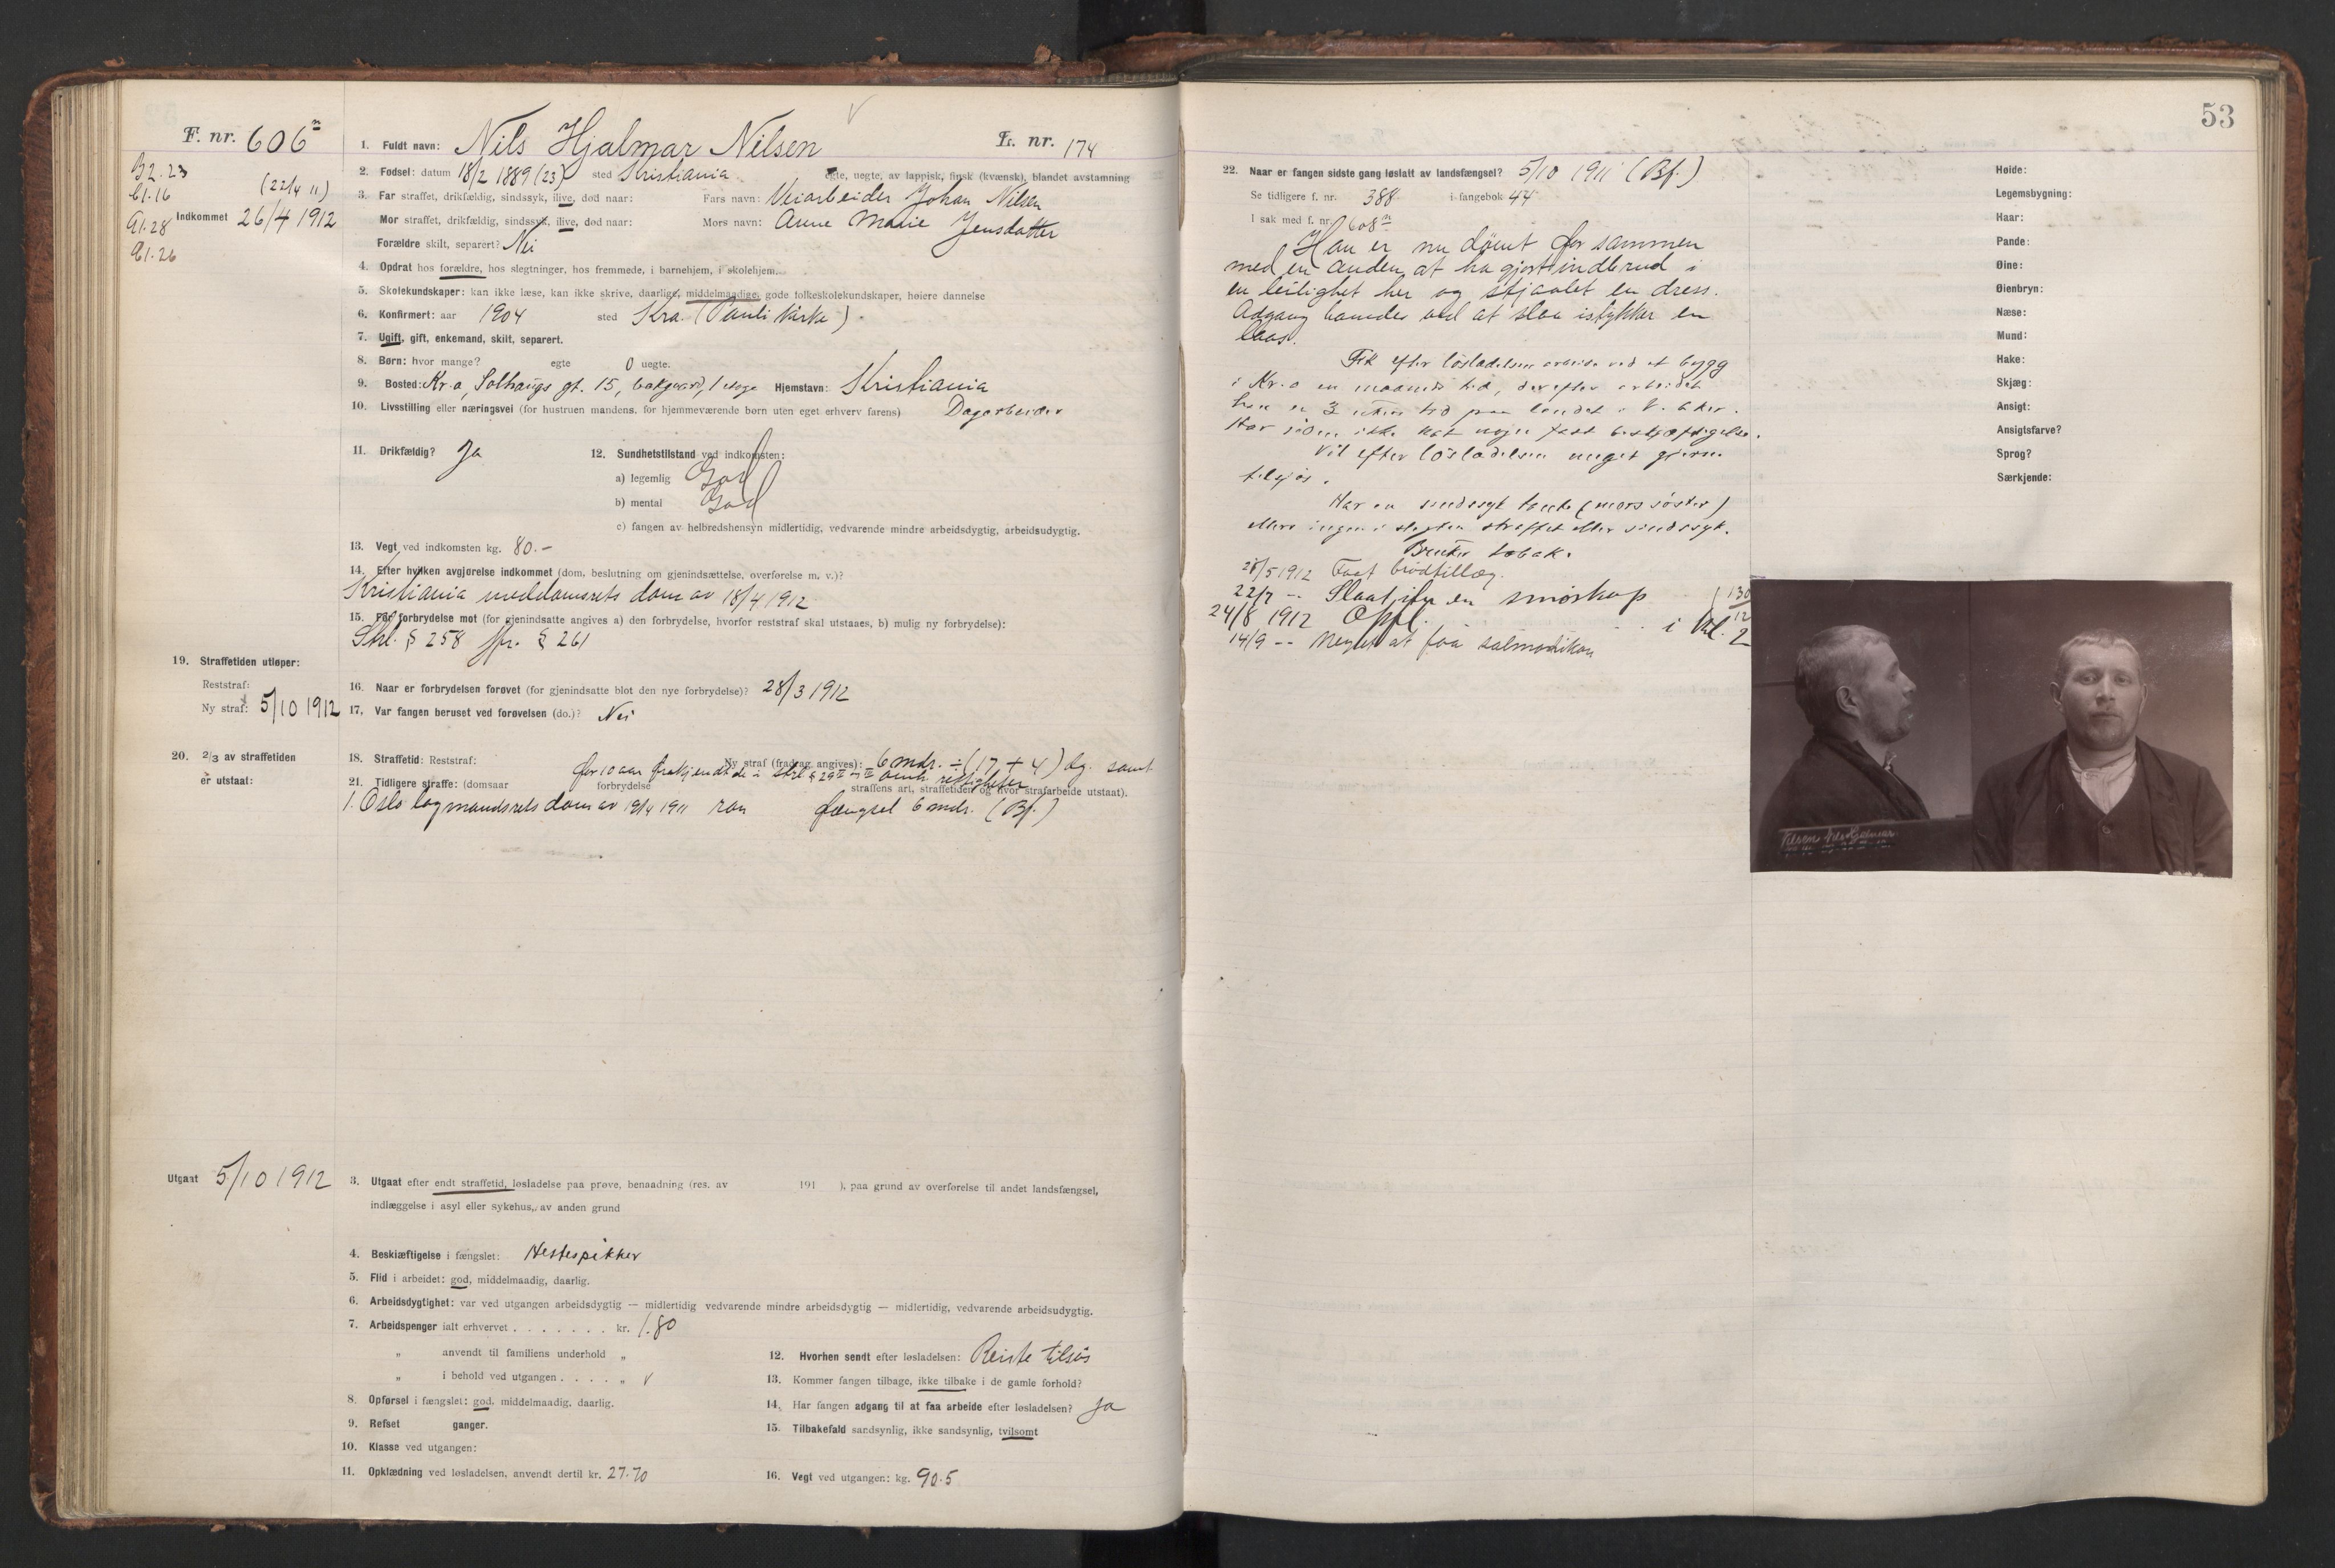 F. nr. 606
B2.23
(22/4 11)
Indkommet 26/4 1912
1. Fuldt navn: Nils Hjalmar Nilsen L. nr. 174
2. Fødsel: datum 18/2 1889 (23) sted Kristiania egte, uegte, av lappisk, finsk (kvænsk), blandet avstamning
3. Far straffet, drikfældig, sindssyk, ilive, død naar: Fars navn: Veiarbeider Johan Nilsen
Mor straffet, drikfældig, sindssyk, ilive, død naar: Mors navn: Anne Marie Jensdatter
Forældre skilt, separert? Nei
4. Opdrat hos forældre, hos slegtninger, hos fremmede, i barnehjem, i skolehjem.
5. Skolekundskaper: kan ikke læse, kan ikke skrive, daarlige, middelmaadige, gode folkeskolekundskaper, høiere dannelse
6. Konfirmert: aar 1904 sted Kra. (Pauli kirke).
7. Ugift, gift, enkemand, skilt, separert.
8. Børn: hvor mange? egte 0 uegte.
9. Bosted: Kr.a, Solhaugs gt. 15, bakgaard, 1 etage Hjemstavn: Kristiania
10. Livsstilling eller næringsvei (for hustruen mandens, for hjemmeværende børn uten eget erhverv farens) Dagarbeider
11. Drikfældig? Ja 12. Sundhetstilstand ved indkomsten:
a) legemlig God
b) mental God
c) fangen av helbredshensyn midlertidig, vedvarende mindre arbeidsdygtig, arbeidsudygtig.
13. Vegt ved indkomsten kg. 80.-
14. Efter hvilken avgjørelse indkommet (dom, beslutning om gjenindsættelse, overførelse m. v.)?
Kristiania meddomsrets dom av 18/4 1912
15. For forbrydelse mot (for gjenindsatte angives a) den forbrydelse, hvorfor reststraf skal utstaaes, b) mulig ny forbrydelse):
Strl. § 258 jfr. § 261
19. Straffetiden utløper:
Reststraf:
Ny straf: 5/10 1912
16. Naar er forbrydelsen forøvet (for gjenindsatte blot den nye forbrydelse)? 28/3 1912
17. Var fangen beruset ved forøvelsen (do.)? Nei
20. 2/3 av straffetiden
er utstaat:
18. Straffetid: Reststraf: Ny straf (fradrag angives): 6 mdr. ÷ (17 + 4) dg. samt
for 10 aar frakjendt de i Strl § 29 omh. rettigheter
21. Tidligere straffe: (domsaar forbrydelse straffens art, straffetiden og hvor strafarbeide utstaat).
1. Oslo lagmandsrets dom av 19/4 1911 ran fængsel 6 mdr. (Bf.)
Utgaat 5/10 1912
3. Utgaat efter endt straffetid, løsladelse paa prøve, benaadning (res. av 191 ), paa grund av overførelse til andet landsfængsel,
indlæggelse i asyl eller sykehus, av anden grund
4. Beskjæftigelse i fængslet: Hestepikker
5. Flid i arbeidet: god, middelmaadig, daarlig.
6. Arbeidsdygtighet: var ved utgangen arbeidsdygtig — midlertidig vedvarende mindre arbeidsdygtig — midlertidig, vedvarende arbeidsudygtig.
7. Arbeidspenger ialt erhvervet . . . . . . . kr. 1.80
„ anvendt til familiens underhold „
„ i behold ved utgangen . . . . „
8. Opførsel i fængslet: god, middelmaadig, daarlig.
9. Refset ganger.
10. Klasse ved utgangen:
11. Opklædning ved løsladelsen, anvendt dertil kr. 27.70
12. Hvorhen sendt efter løsladelsen: Reiste tilsjøs
13. Kommer fangen tilbage, ikke tilbake i de gamle forhold?
14. Har fangen adgang til at faa arbeide efter løsladelsen? Ja
15. Tilbakefald sandsynlig, ikke sandsynlig, tvilsomt
16. Vegt ved utgangen: kg. 90.5
53
22. Naar er fangen sidste gang løslatt av landsfængsel? 5/10 1911 (Bf.)
Se tidligere f. nr. 388 i fangebok 44
I sak med f. nr. 608
Han er nu dömt for sammen
med en anden at ha gjort indbrud i
en leilighet her og stjaalet en dress.
Adgang banedes ved at slaa istykker en
laas.
Fik efter lösladelsen arbeide ved et bygg
i Kr.a en maaneds tid, derefter arbeidet
han en 3 ukers tid paa landet i V. Aker.
Har siden ikke hat nogen fast beskjæftigelse.
Vil efter lösladelsen meget gjerne
tilsjøs.
Har en sindssyk tante (mors söster)
ellers ingen i slegten straffet eller sindssyk.
Bruker tobak.
28/5 1912 Faat brödtillæg.
22/7 -- Slaat itu en smørkop (130
24/8 1912 Oppl. i kl. 2
14/9 -- Negtet at faa salmodikon
Høide:
Legemsbygning:
Haar:
Pande:
Øine:
Øienbryn:
Næse:
Mund:
Hake:
Skjæg:
Ansigt:
Ansigtsfarve?
Sprog?
Særkjende:
Nilsen Nils Hjalmar